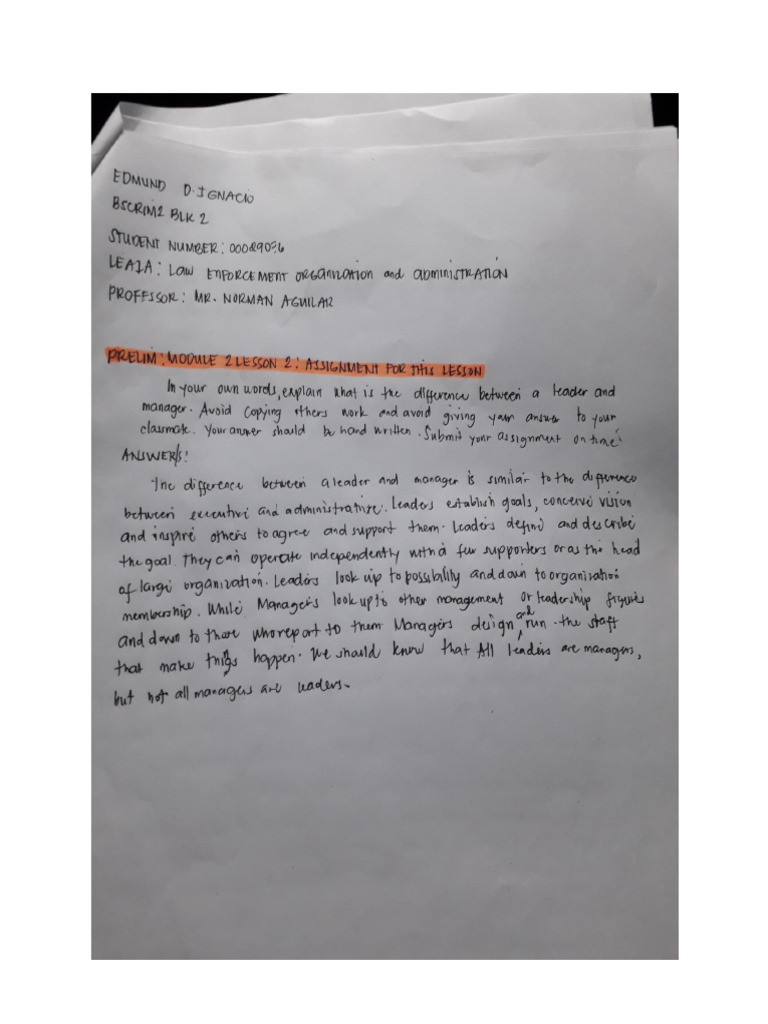 EDMUND D. IGNACIO
BSCRIM2 BLK 2
STUDENT NUMBER: 00029036
LEA1A: LAW ENFORCEMENT ORGANIZATION and ADMINISTRATION
PROFESSOR: MR. NORMAN AGUILAR
PRELIM: MODULE 2 LESSON 2: ASSIGNMENT FOR THIS LESSON
In your own words, explain what is the difference between a leader and
manager. Avoid copying others work and avoid giving your answer to your
classmate. Your answer should be hand written. Submit your assignment on time!
ANSWER/S:
The difference between a leader and manager is similar to the difference
between executive and administrative. Leaders establish goals, conceive vision
and inspire others to agree and support them. Leaders define and describe
the goal. They can operate independently with a few supporters or as the head
of large organization. Leaders look up to possibility and down to organization
membership. While Managers look up to other management or leadership figures
and down to those who report to them. Managers design and run the staff
that make things happen. We should know that All leaders are managers,
but not all managers are leaders.